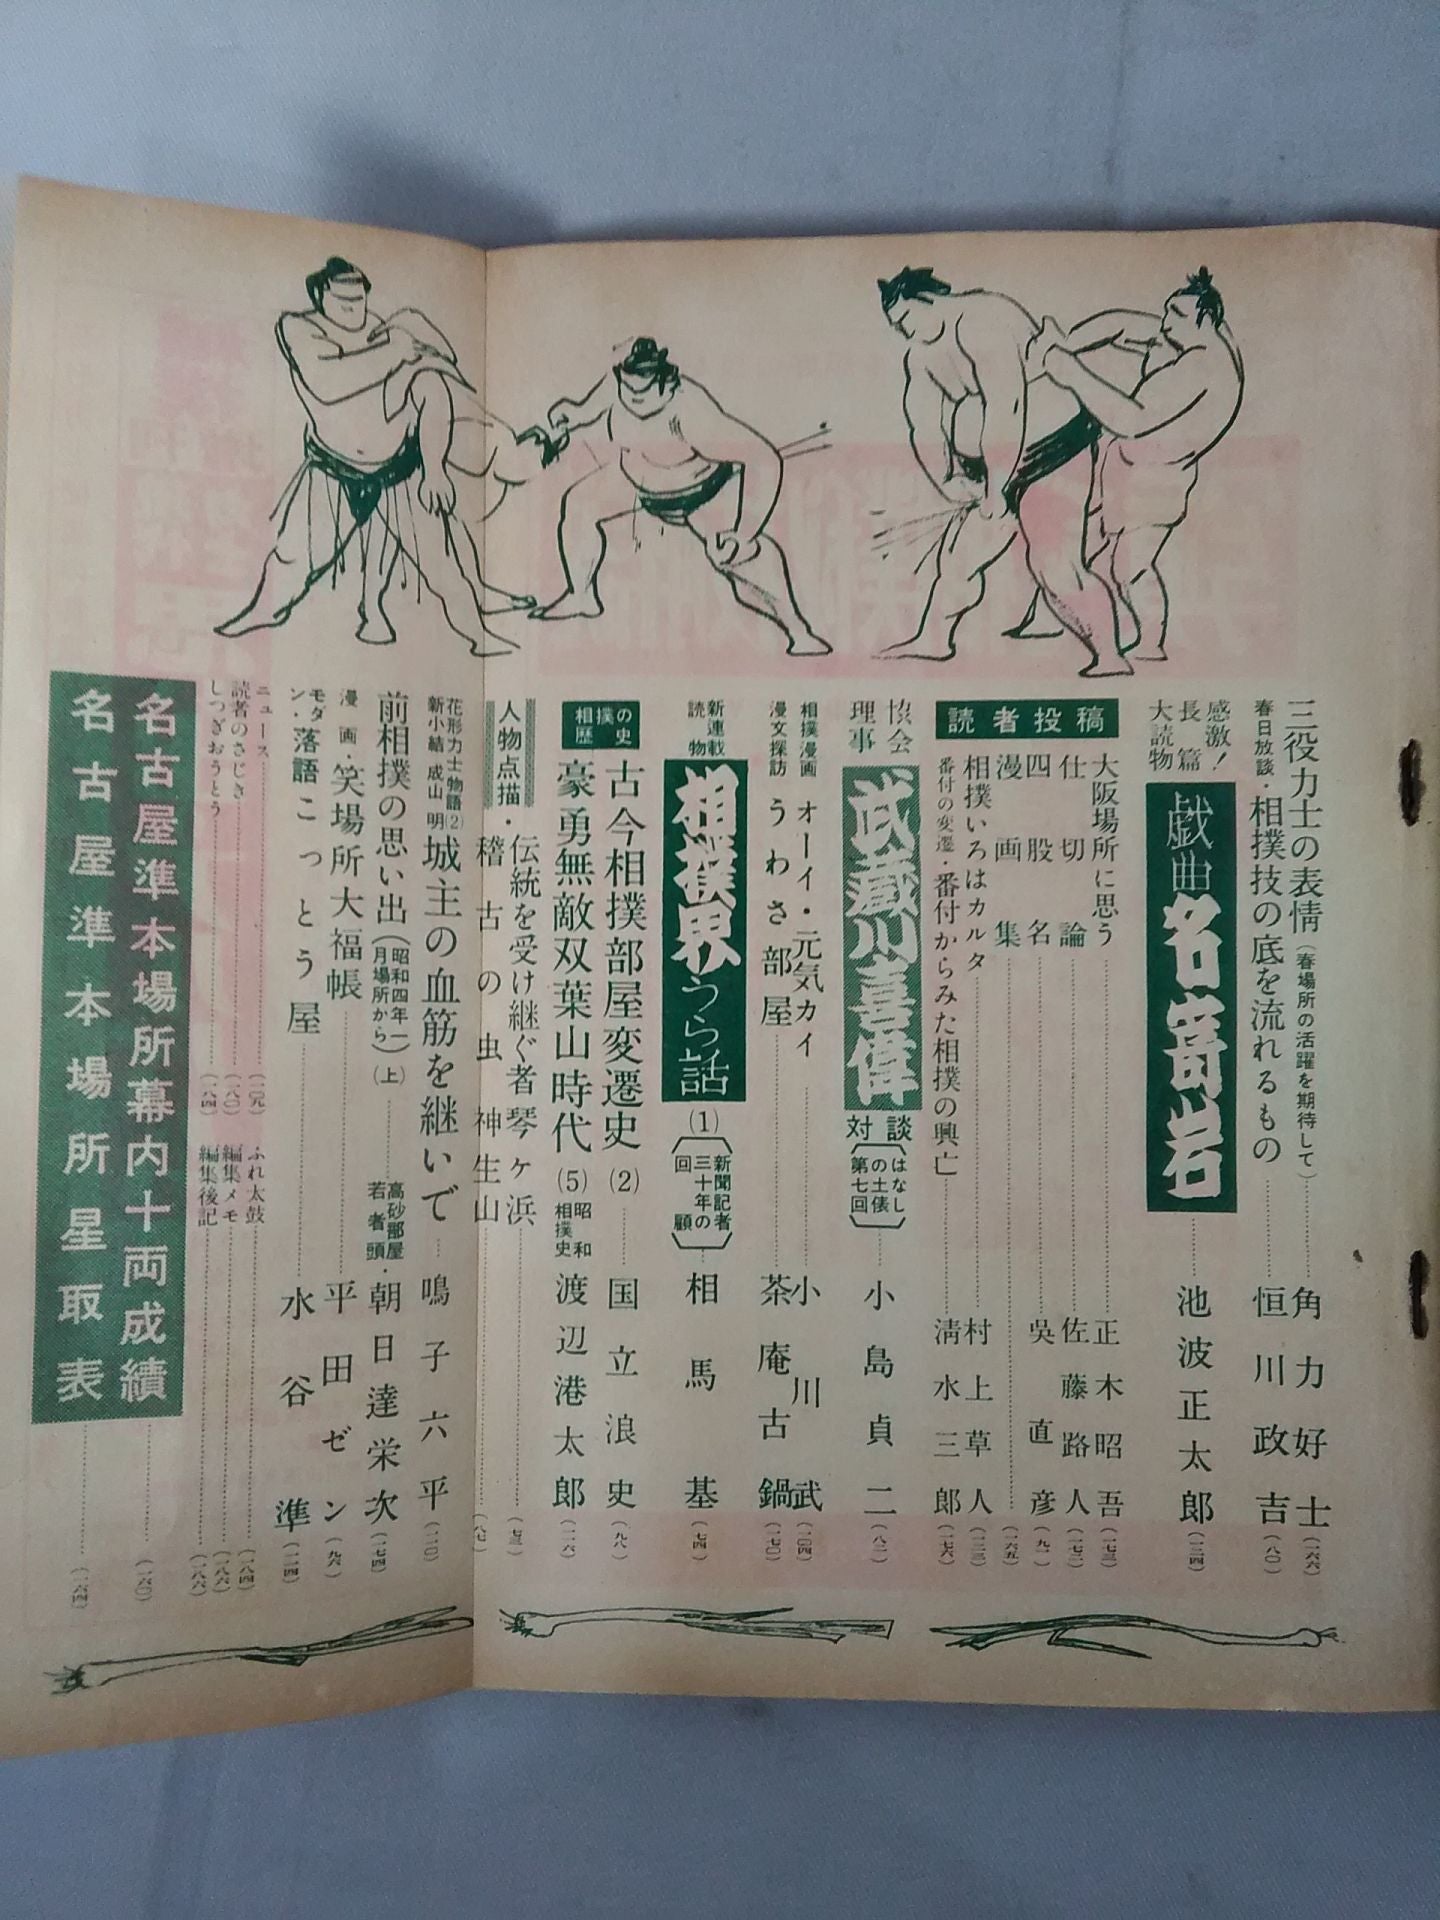 三役力士の表情(春場所の活躍を期待して)……角力好士(一六六)
春日放談・相撲技の底を流れるもの……恒川政吉(八〇)
感激!長篇大読物 戯曲 名寄岩……池波正太郎(一二四)
読者投稿
大阪場所に思う……正木昭吾(一七三)
仕切論……佐藤路人(一七二)
四股名……呉直彦(九一)
漫画集……(一六五)
相撲いろはカルタ……村上草人(一二三)
番付の変遷・番付からみた相撲の興亡……清水三郎(一七六)
協会理事 武蔵川喜偉 対談(はなしの土俵第七回)……小島貞二(八二)
相撲漫画 オーイ・元気カイ……小川武(一〇四)
漫文探訪 うわさ部屋……茶庵古鍋(一七〇)
新連載読物 相撲界うら話(1)(新聞記者三十年の回顧)……相馬基(七四)
相撲の歴史
古今相撲部屋変遷史(2)……国立浪史(九八)
豪勇無敵双葉山時代(5)昭和相撲史 渡辺港太郎(一一六)
人物点描・伝統を受け継ぐ者琴ヶ浜……(七三)
稽古の虫神生山……(八七)
花形力士物語(2)新小結 成山 明 城主の血筋を継いで…鳴子六平(一一〇)
前相撲の思い出(昭和四年一月場所から)(上)……高砂部屋若者頭・朝日達栄次(一七四)
漫画・笑場所大福帳……平田ゼン(九六)
モダン・落語こっとう屋……水谷準(一一四)
ニュース……(一〇九)
読者のさじき……(一八〇)
しつぎおうとう……(一八四)
ふれ太鼓……(一八四)
編集メモ……(一八六)
編集後記……(一八六)
名古屋準本場所幕内十両成績……(一六〇)
名古屋準本場所星取表……(一六四)